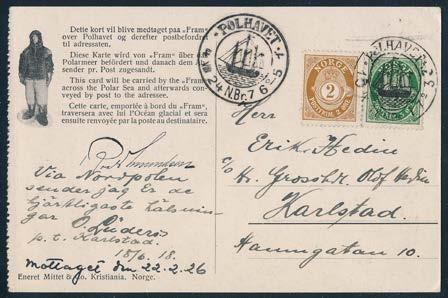 Dette kort vil blive medtaget paa „Fram"
over Polhavet og derefter postbefordret
til adressaten.
Diese Karte wird von „Fram" über
Polarmeer befördert und danach dem A
sender pr. Post zugesandt.
This card will be carried by the „Fram"
across the Polar Sea and afterwards con-
veyed by post to the adressee.
Cette carte, emportée à bord du „Fram",
traversera avec lui l'Océan glacial et sera
ensuite renvoyée par la poste au destinataire.
POLHAVET
24 N.Br. 7 6-5
NORGE
2
POSTFRIM. 2 ØRE.
POLHAVET
Via Nordpolen
sender jag Er de
hjärtligaste hälsnin-
gar
p. t. Karlstad.
15/6. 18.
Mottaget den 22-2-26
Eneret Mittet & Co. Kristiania. Norge.
Herr
Erik Hedin
c/o Hr. Grossh. Olof Hedin
Karlstad.
Hamngatan 10.